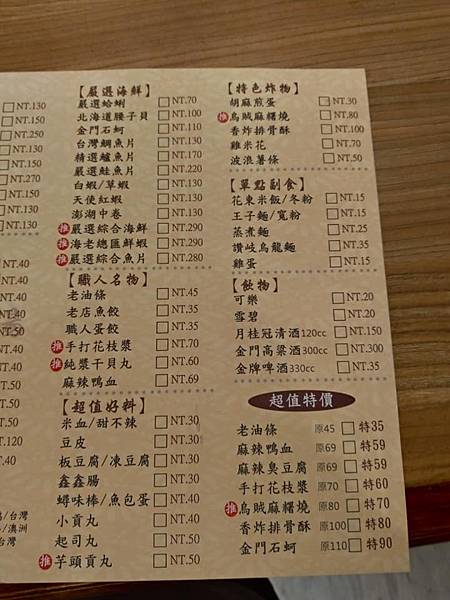 NT.130
NT.150
NT.250
NT.130
NT.170
NT.270
NT.150
NT.130
NT.130
NT.40
NT.40
NT.40
NT.50
NT.40
NT.40
NT.40
NT.50
NT.50
NT.120
NT.40
NT.50
/台灣
/澳洲
台灣
【嚴選海鮮】
嚴選蛤蜊 NT.70
北海道腰子貝 NT.100
金門石蚵 NT.110
台灣鯛魚片 NT.170
精選鱸魚片 NT.170
嚴選鮭魚片 NT.220
白蝦/草蝦 NT.130
天使紅蝦 NT.130
澎湖中卷 NT.130
推 嚴選綜合海鮮 NT.290
推 海老總匯鮮蝦 NT.290
推 嚴選綜合魚片 NT.280
【職人名物】
老油條 NT.45
老店魚餃 NT.35
職人蛋餃 NT.35
推 手打花枝漿 NT.70
推 純漿干貝丸 NT.60
麻辣鴨血 NT.69
【超值好料】
米血/甜不辣 NT.30
豆皮 NT.30
板豆腐/凍豆腐 NT.30
鑫鑫腸 NT.30
蟳味棒/魚包蛋 NT.40
小貢丸 NT.40
起司丸 NT.50
推 芋頭貢丸 NT.50
【特色炸物】
胡麻煎蛋 NT.30
推 烏賊麻糬燒 NT.80
香炸排骨酥 NT.100
雞米花 NT.70
波浪薯條 NT.50
【單點副食】
花東米飯/冬粉 NT.15
王子麵/寬粉 NT.15
蒸煮麵 NT.25
讚岐烏龍麵 NT.35
雞蛋 NT.15
【飲物】
可樂 NT.20
雪碧 NT.20
月桂冠清酒120cc NT.150
金門高粱酒300cc NT.300
金牌啤酒330cc NT.35
超值特價
老油條 原45 特35
麻辣鴨血 原69 特59
麻辣臭豆腐 原69 特59
手打花枝漿 原70 特60
推 烏賊麻糬燒 原80 特70
香炸排骨酥 原100 特80
金門石蚵 原110 特90